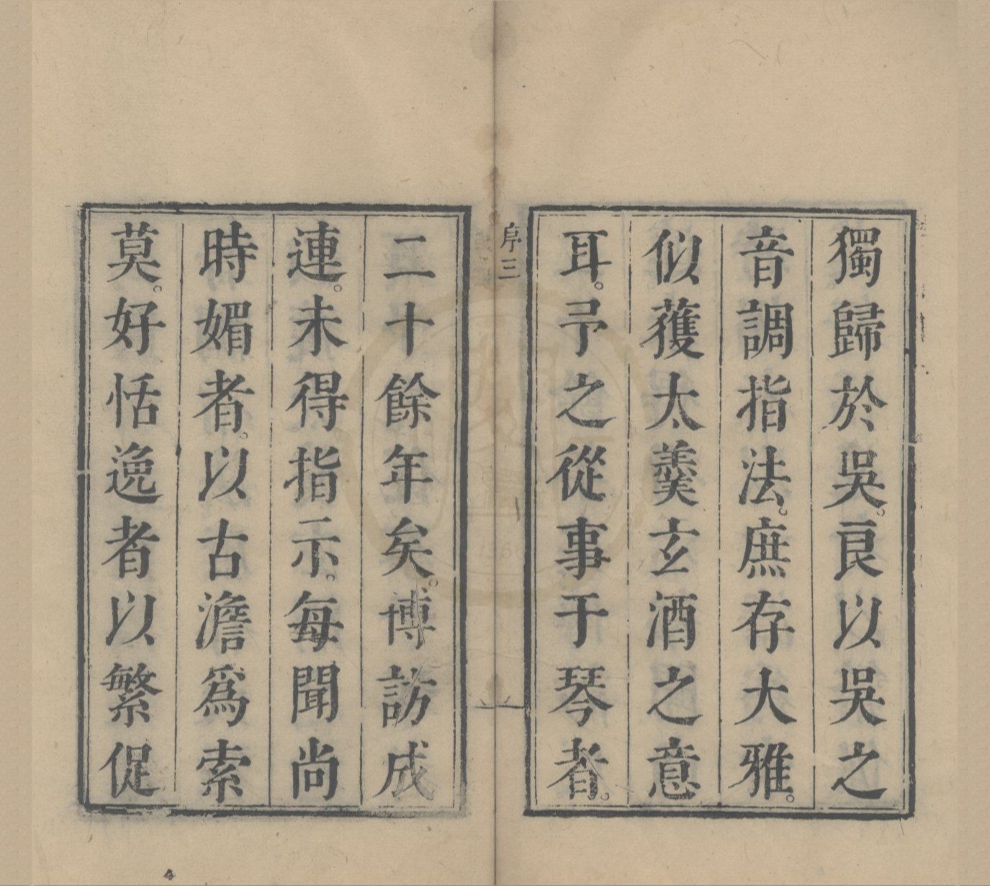 獨歸於吳。良以吳之
音調指法。庶存大雅。
似蒦太羹玄酒之意
耳。予之從事于琴者。
序三
二十餘年矣。博訪成
連。未得指示。每聞尚
時媚者。以古澹爲索
莫。好恬逸者以繁促